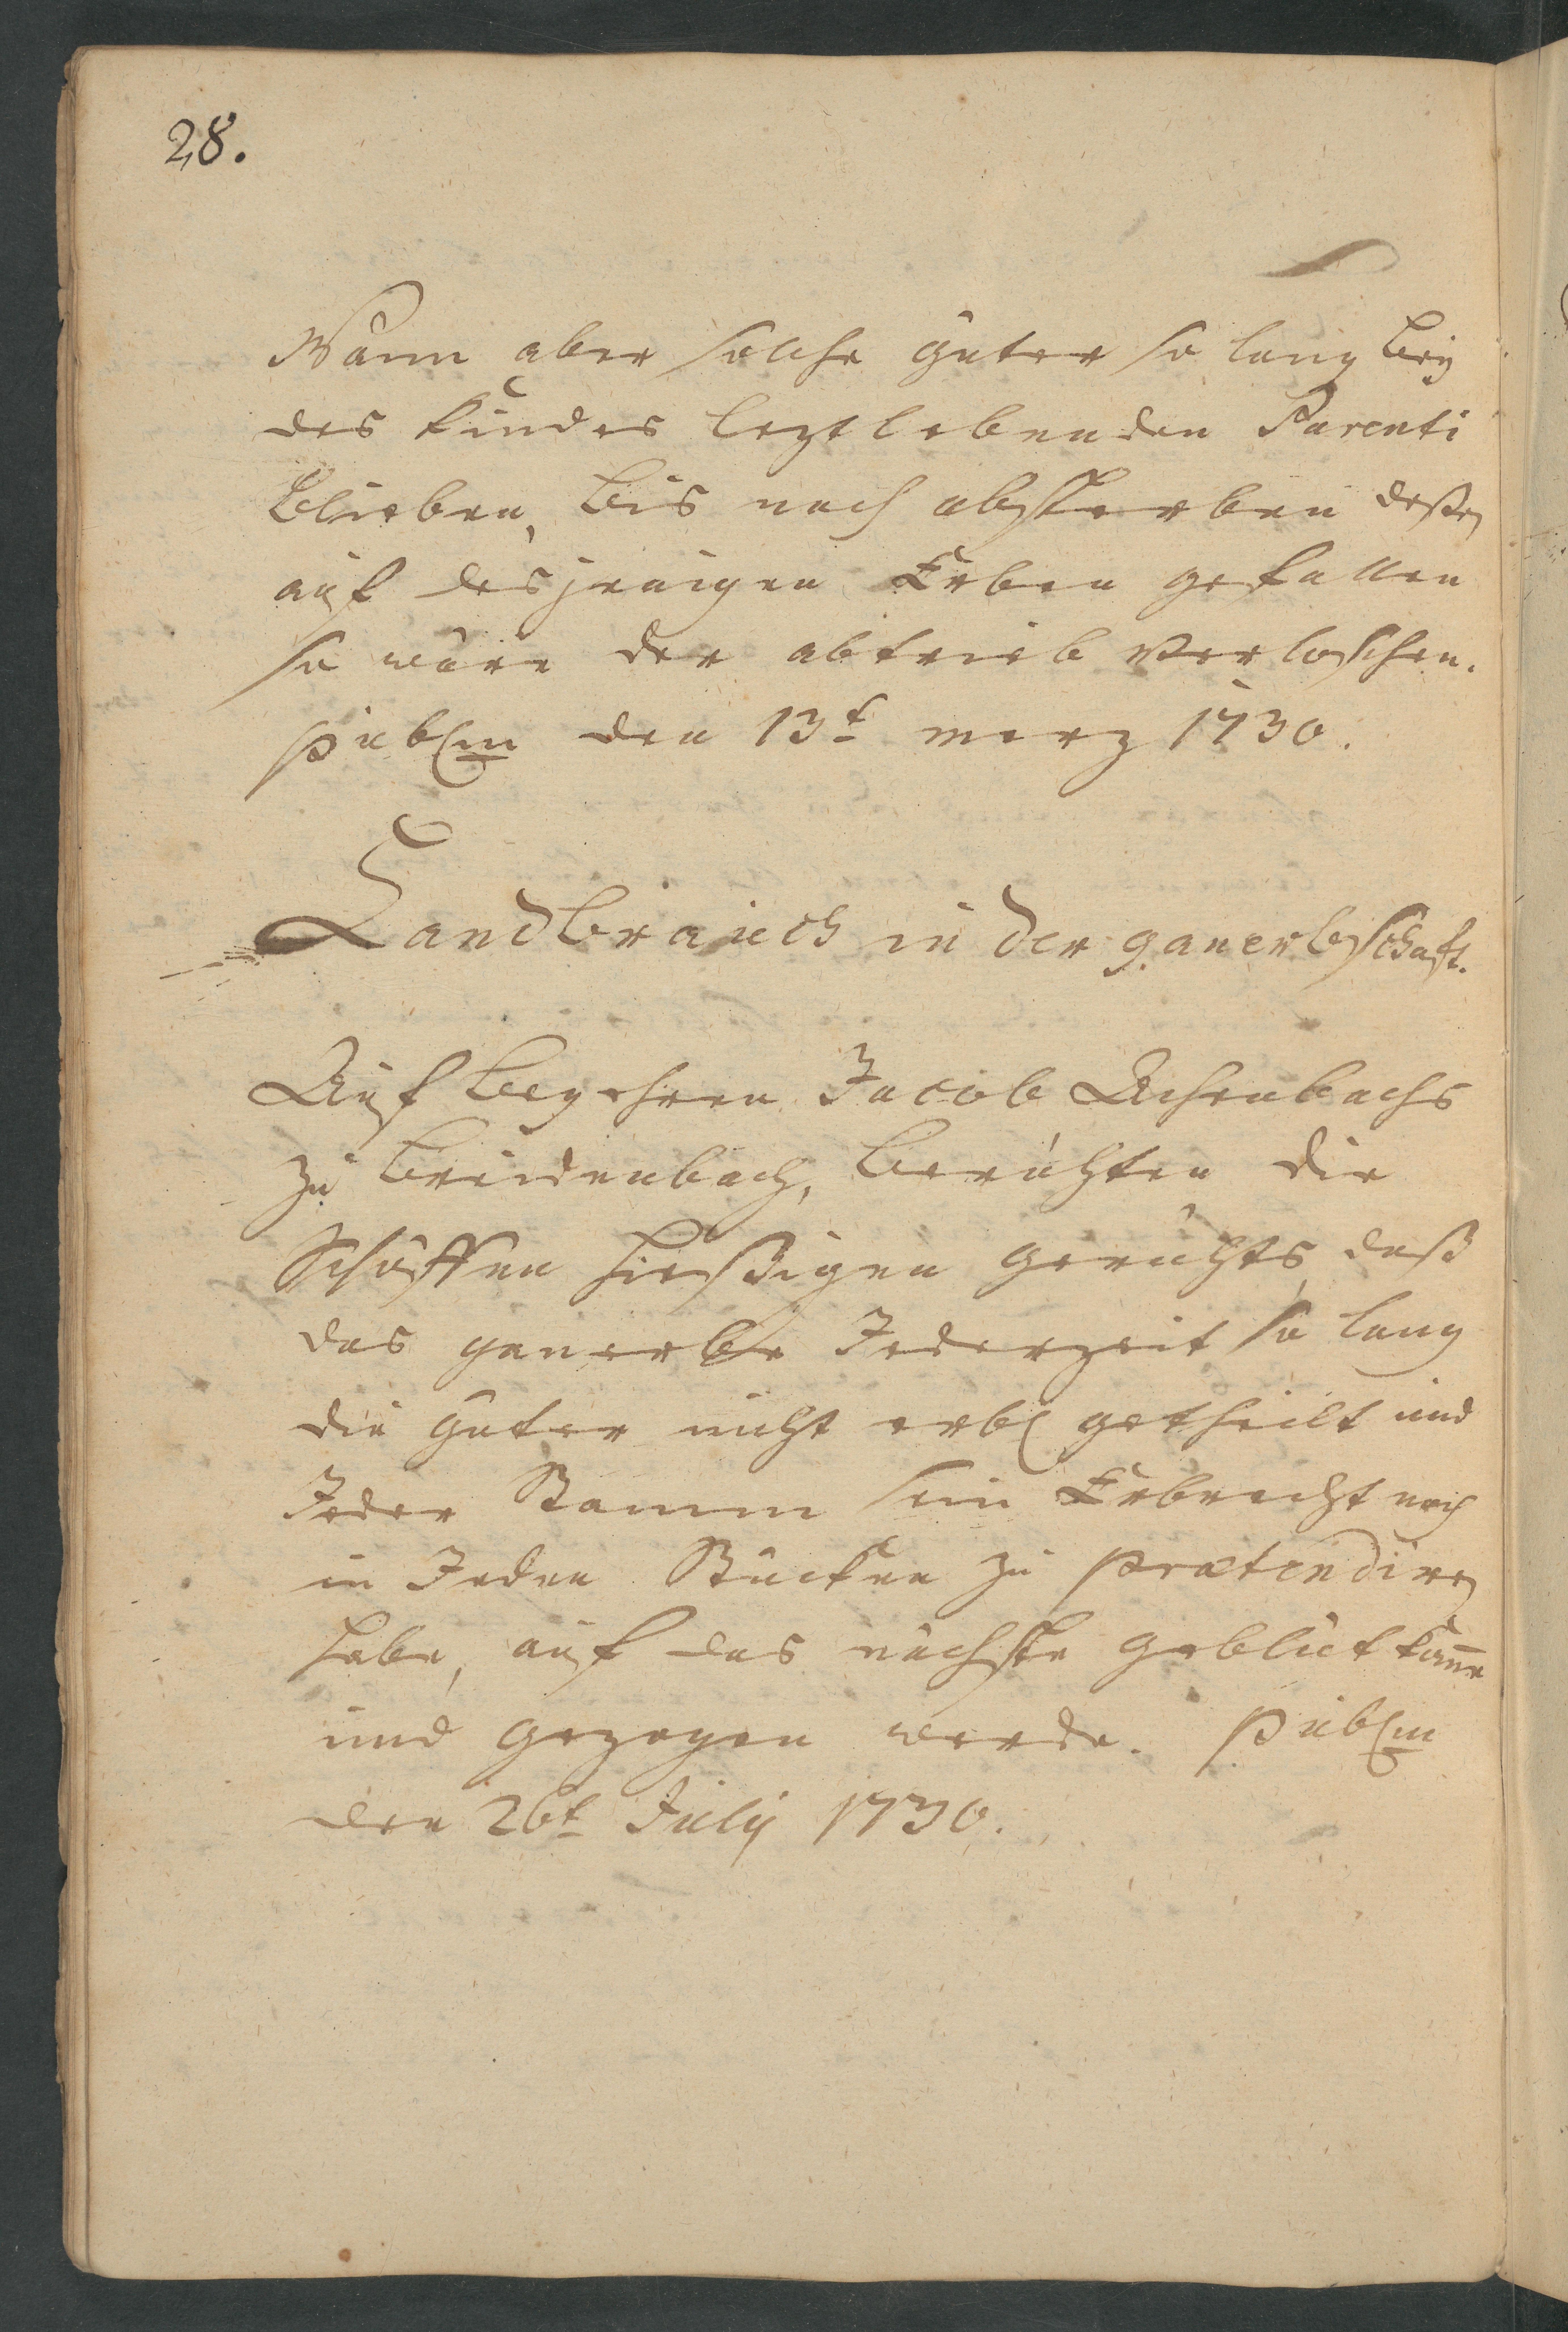 28.
Wann aber solche güter so lang bey
des Kindes leztlebenden Parenti
blieben, bis nach absterben deßen
auf desjenigen Erben gefallen
so wäre der abtrieb verloschen.
publm den 13t. merz 1730.
Landbrauch in der ganerbschaft.
Auf begehren Jacob Achenbachs
zu breidenbach, berichten die
Schöffen hießigen gerichts, daß
das ganerbe Jederzeit so lang
die güter nicht erbl getheilt und
Jeder Stamm sein Erbrecht noch
in Jeden Stücken zu prætendiren
habe, auf das nächste geblüt komme
und gezogen werde. publm
den 26t. July 1730.